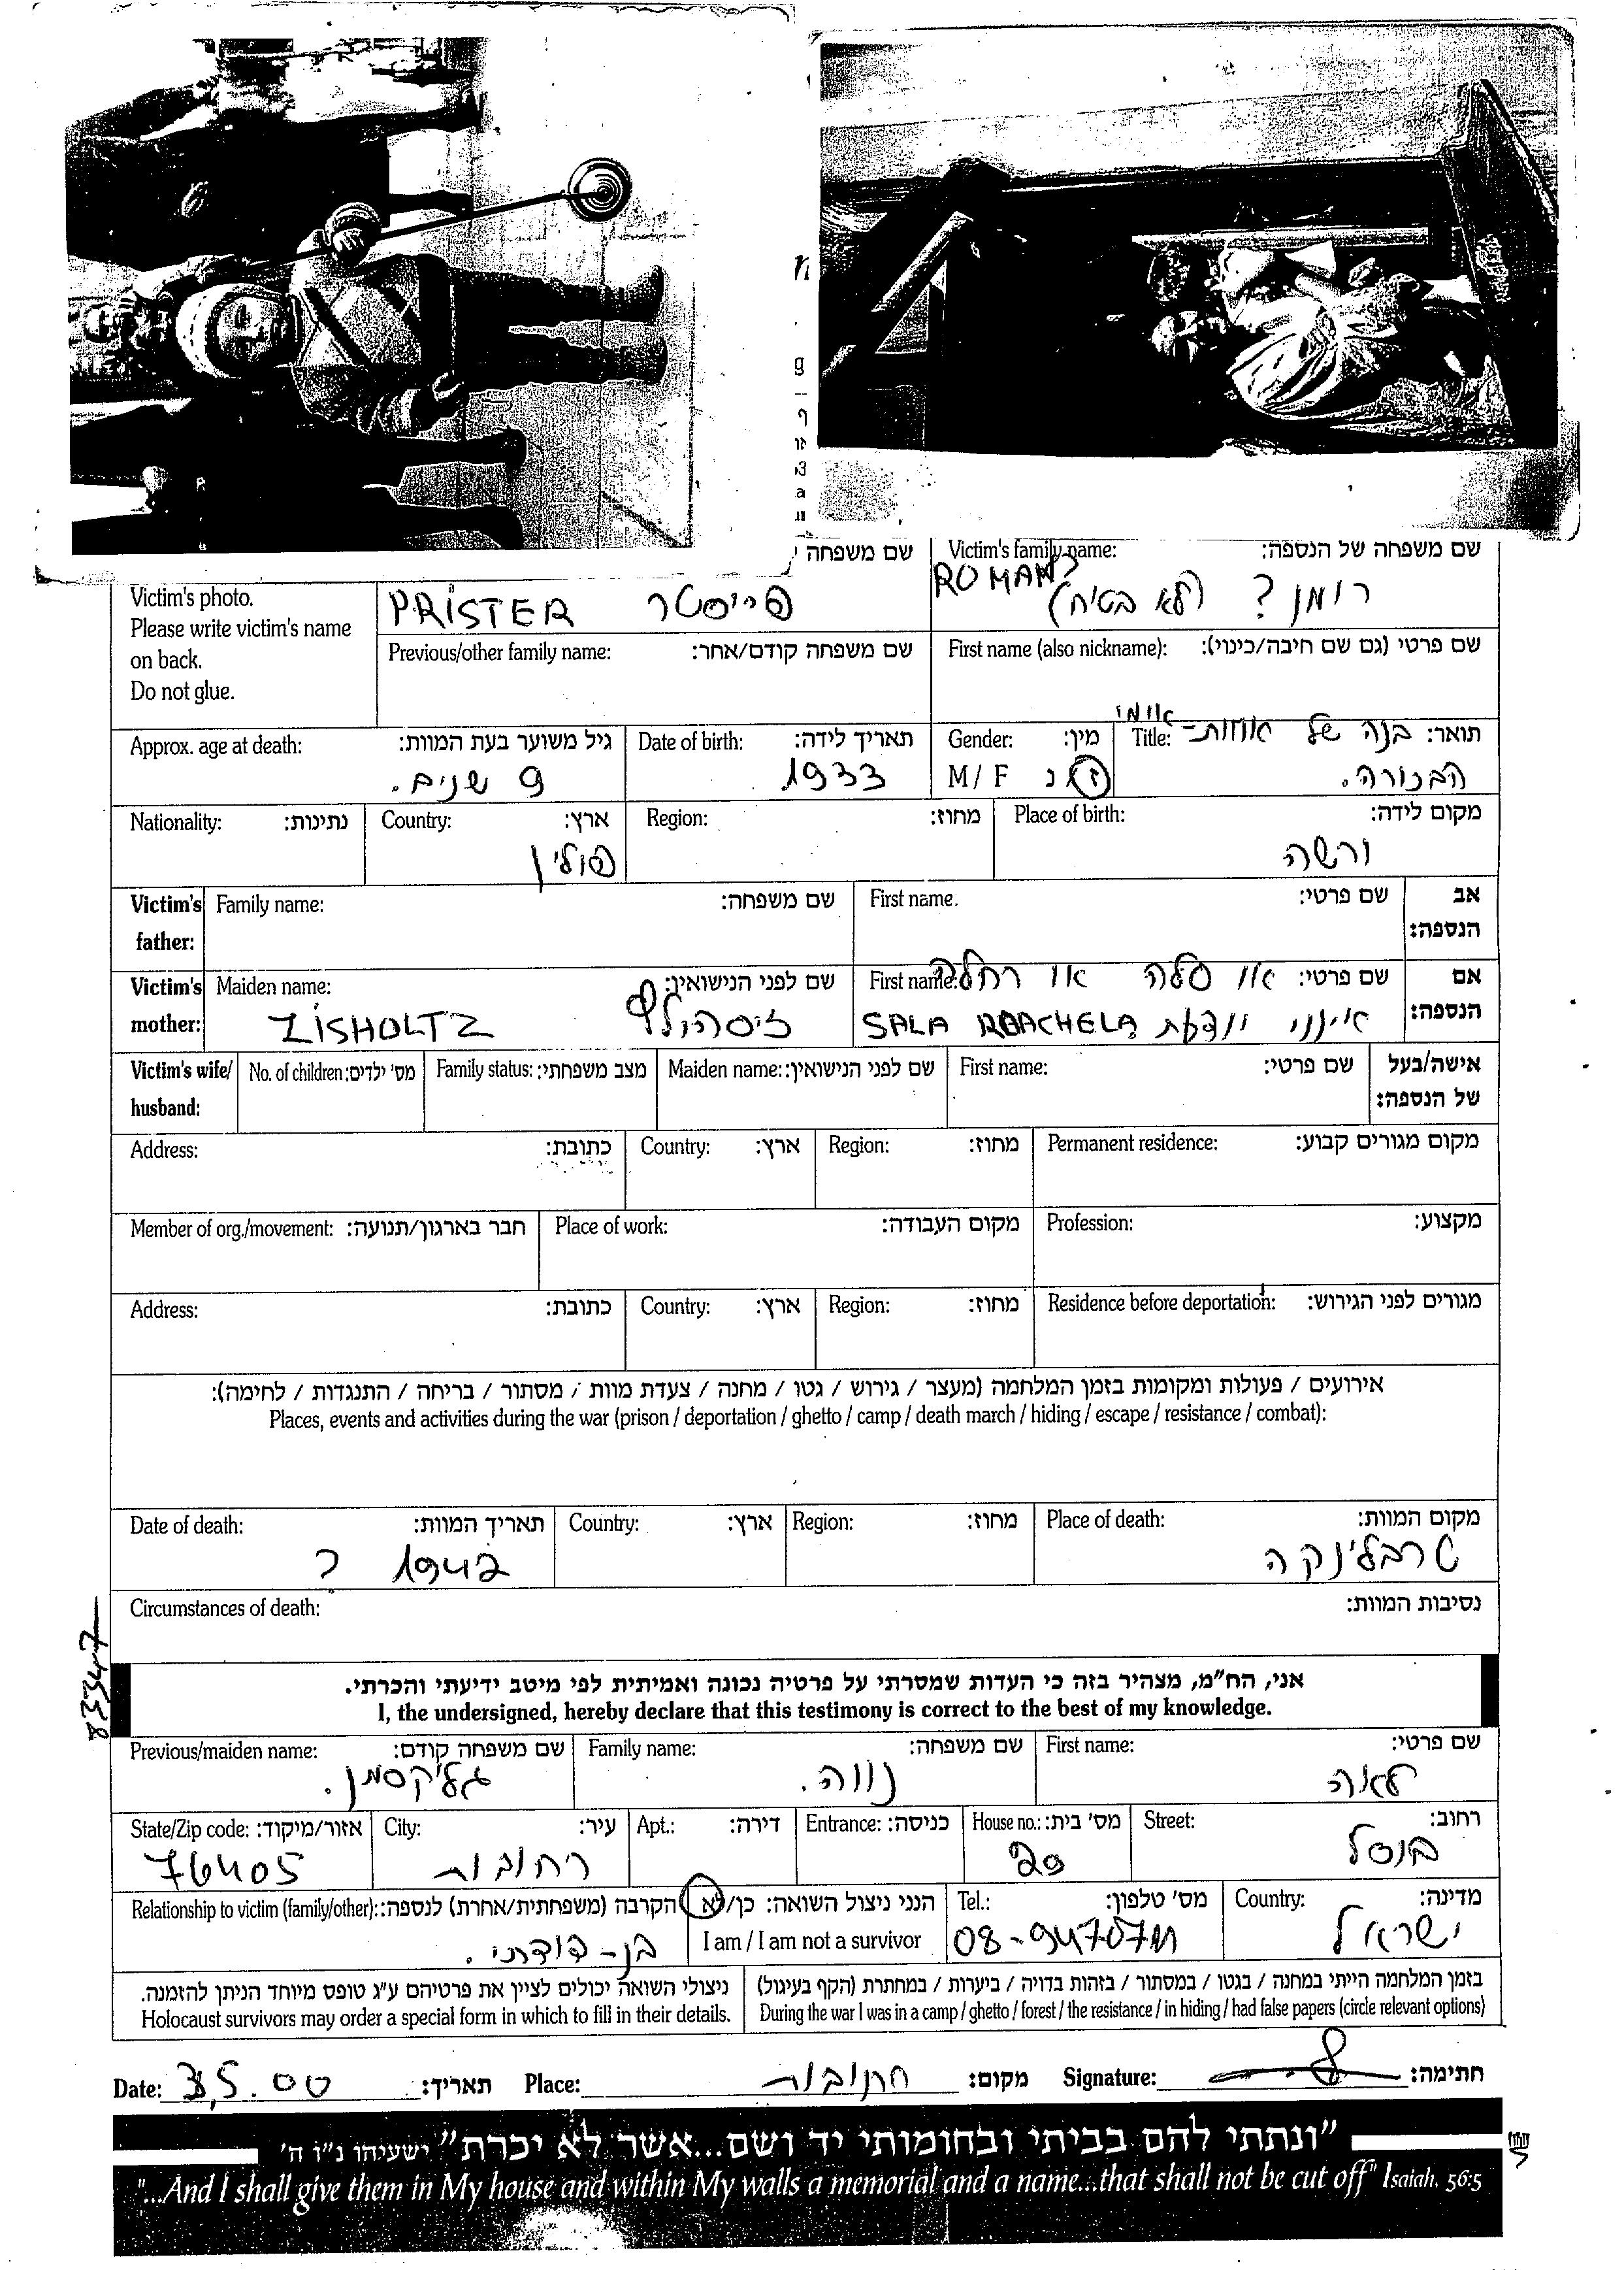 שם משפחה Victim's family name: שם משפחה של הנספה:
Victim's photo.
Please write victim's name
on back.
Do not glue.
PRISTER פריסטר ROMAN? רומן ? (לא בטוח)
Previous/other family name: שם משפחה קודם/אחר: First name (also nickname): שם פרטי (גם שם חיבה/כינוי):
Approx. age at death: גיל משוער בעת המוות: Date of birth: תאריך לידה: Gender: מין: Title: תואר: בנה של אחות- אימי
9 שנים. 1933 M / F ז/נ הבכורה.
Nationality: נתינות: Country: ארץ: Region: מחוז: Place of birth: מקום לידה:
פולין ורשה
Victim's father: Family name: שם משפחה: First name: שם פרטי: אב הנספה:
Victim's mother: Maiden name: שם לפני הנישואין: First name: שם פרטי: או סלה או רחלה אם הנספה:
ZISHOLTZ זיסהולץ SALA RACHELA אינני יודעת
Victim's wife/husband: No. of children: מס' ילדים: Family status: מצב משפחתי: Maiden name: שם לפני הנישואין: First name: שם פרטי: אישה/בעל של הנספה:
Address: כתובת: Country: ארץ: Region: מחוז: Permanent residence: מקום מגורים קבוע:
Member of org./movement: חבר בארגון/תנועה: Place of work: מקום העבודה: Profession: מקצוע:
Address: כתובת: Country: ארץ: Region: מחוז: Residence before deportation: מגורים לפני הגירוש:
אירועים / פעולות ומקומות בזמן המלחמה (מעצר / גירוש / גטו / מחנה / צעדת מוות / מסתור / בריחה / התנגדות / לחימה):
Places, events and activities during the war (prison / deportation / ghetto / camp / death march / hiding / escape / resistance / combat):
Date of death: תאריך המוות: Country: ארץ: Region: מחוז: Place of death: מקום המוות:
1942 ? טרבלינקה
Circumstances of death: נסיבות המוות:
83347
אני, הח"מ, מצהיר בזה כי העדות שמסרתי על פרטיה נכונה ואמיתית לפי מיטב ידיעתי והכרתי.
I, the undersigned, hereby declare that this testimony is correct to the best of my knowledge.
Previous/maiden name: שם משפחה קודם: Family name: שם משפחה: First name: שם פרטי:
גליקסמן. נווה. לאה
State/Zip code: אזור/מיקוד: City: עיר: Apt.: דירה: Entrance: כניסה: House no.: מס' בית: Street: רחוב:
76405 רחובות 20
Relationship to victim (family/other): הקרבה (משפחתית/אחרת) לנספה: הנני ניצול השואה: כן/לא Tel.: מס' טלפון: Country: מדינה:
בן-דודתי. I am / I am not a survivor ישראל
ניצולי השואה יכולים לציין את פרטיהם ע"ג טופס מיוחד הניתן להזמנה. בזמן המלחמה הייתי במחנה / בגטו / במסתור / בזהות בדויה / ביערות / במחתרת (הקף בעיגול)
Holocaust survivors may order a special form in which to fill in their details. During the war I was in a camp / ghetto / forest / the resistance / in hiding / had false papers (circle relevant options)
Date: 3.5.00 תאריך: Place: רחובות מקום: Signature: חתימה:
"ונתתי להם בביתי ובחומותי יד ושם...אשר לא יכרת" ישעיהו נ"ו ה'
"...And I shall give them in My house and within My walls a memorial and a name...that shall not be cut off" Isaiah, 56:5